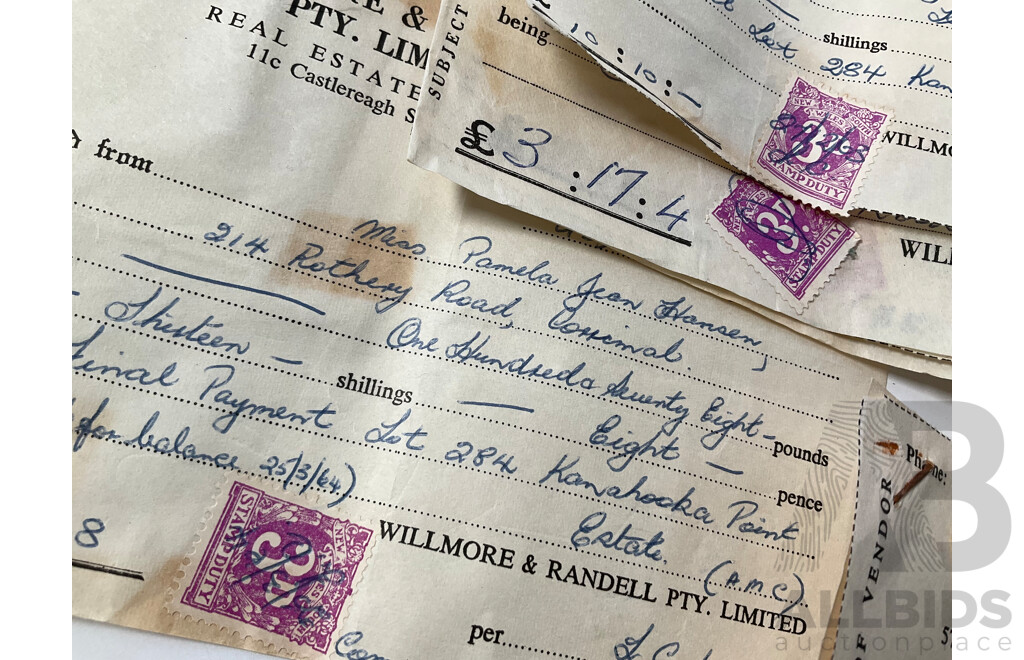 PTY. LIM
REAL ESTATE
11c Castlereagh S
from
Miss Pamela Jean Hansen,
214 Rothery Road, Corrimal.
One Hundred & Seventy Eight - pounds
Thirteen - shillings — Eight - pence
Final Payment Lot 284 Kanahooka Point
for balance 25/3/64) Estate.
(A.M.C)
8
STAMP DUTY
NEW
3D
WILLMORE & RANDELL PTY. LIMITED
per
SUBJECT
being
£ 3 : 17 : 4
STAMP DUTY
WILL
10 : 10 : -
shillings
Lot 284 Kan
NEW SOUTH
WALES
3D
STAMP DUTY
WILLMO
VENDOR
Phone:
OF VENDOR
B
ALLBIDS
auctionplace